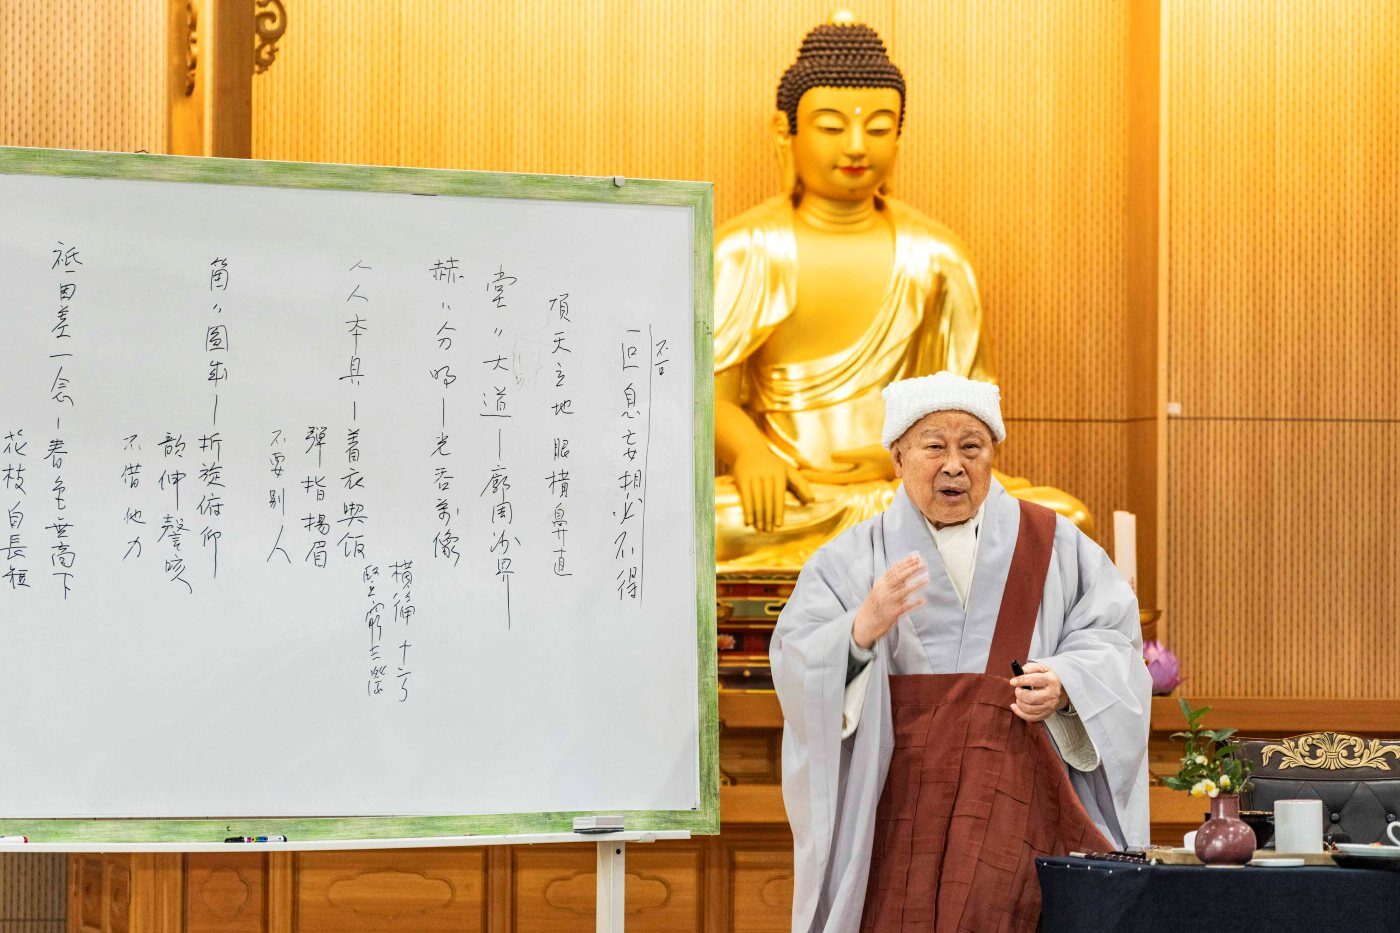 不可
叵息妄想必不得
頂天立地 眼橫鼻直
堂〃大道 — 廓周沙界
赫〃分明 — 光吞萬像
橫徧十方
竪窮三際
人人本具 — 着衣喫飯
彈指揚眉
不要別人
箇〃圓成 — 折旋俯仰
伸謦咳
不借他力
祗因差一念 — 春色無高下
花枝自長短